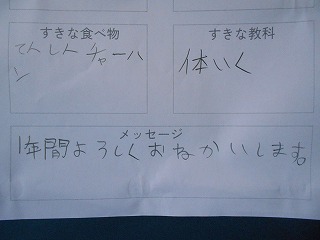 すきな食べ物
てんしんチャーハ
ン
すきな教科
体いく
メッセージ
1年間よろしくおねがいします。